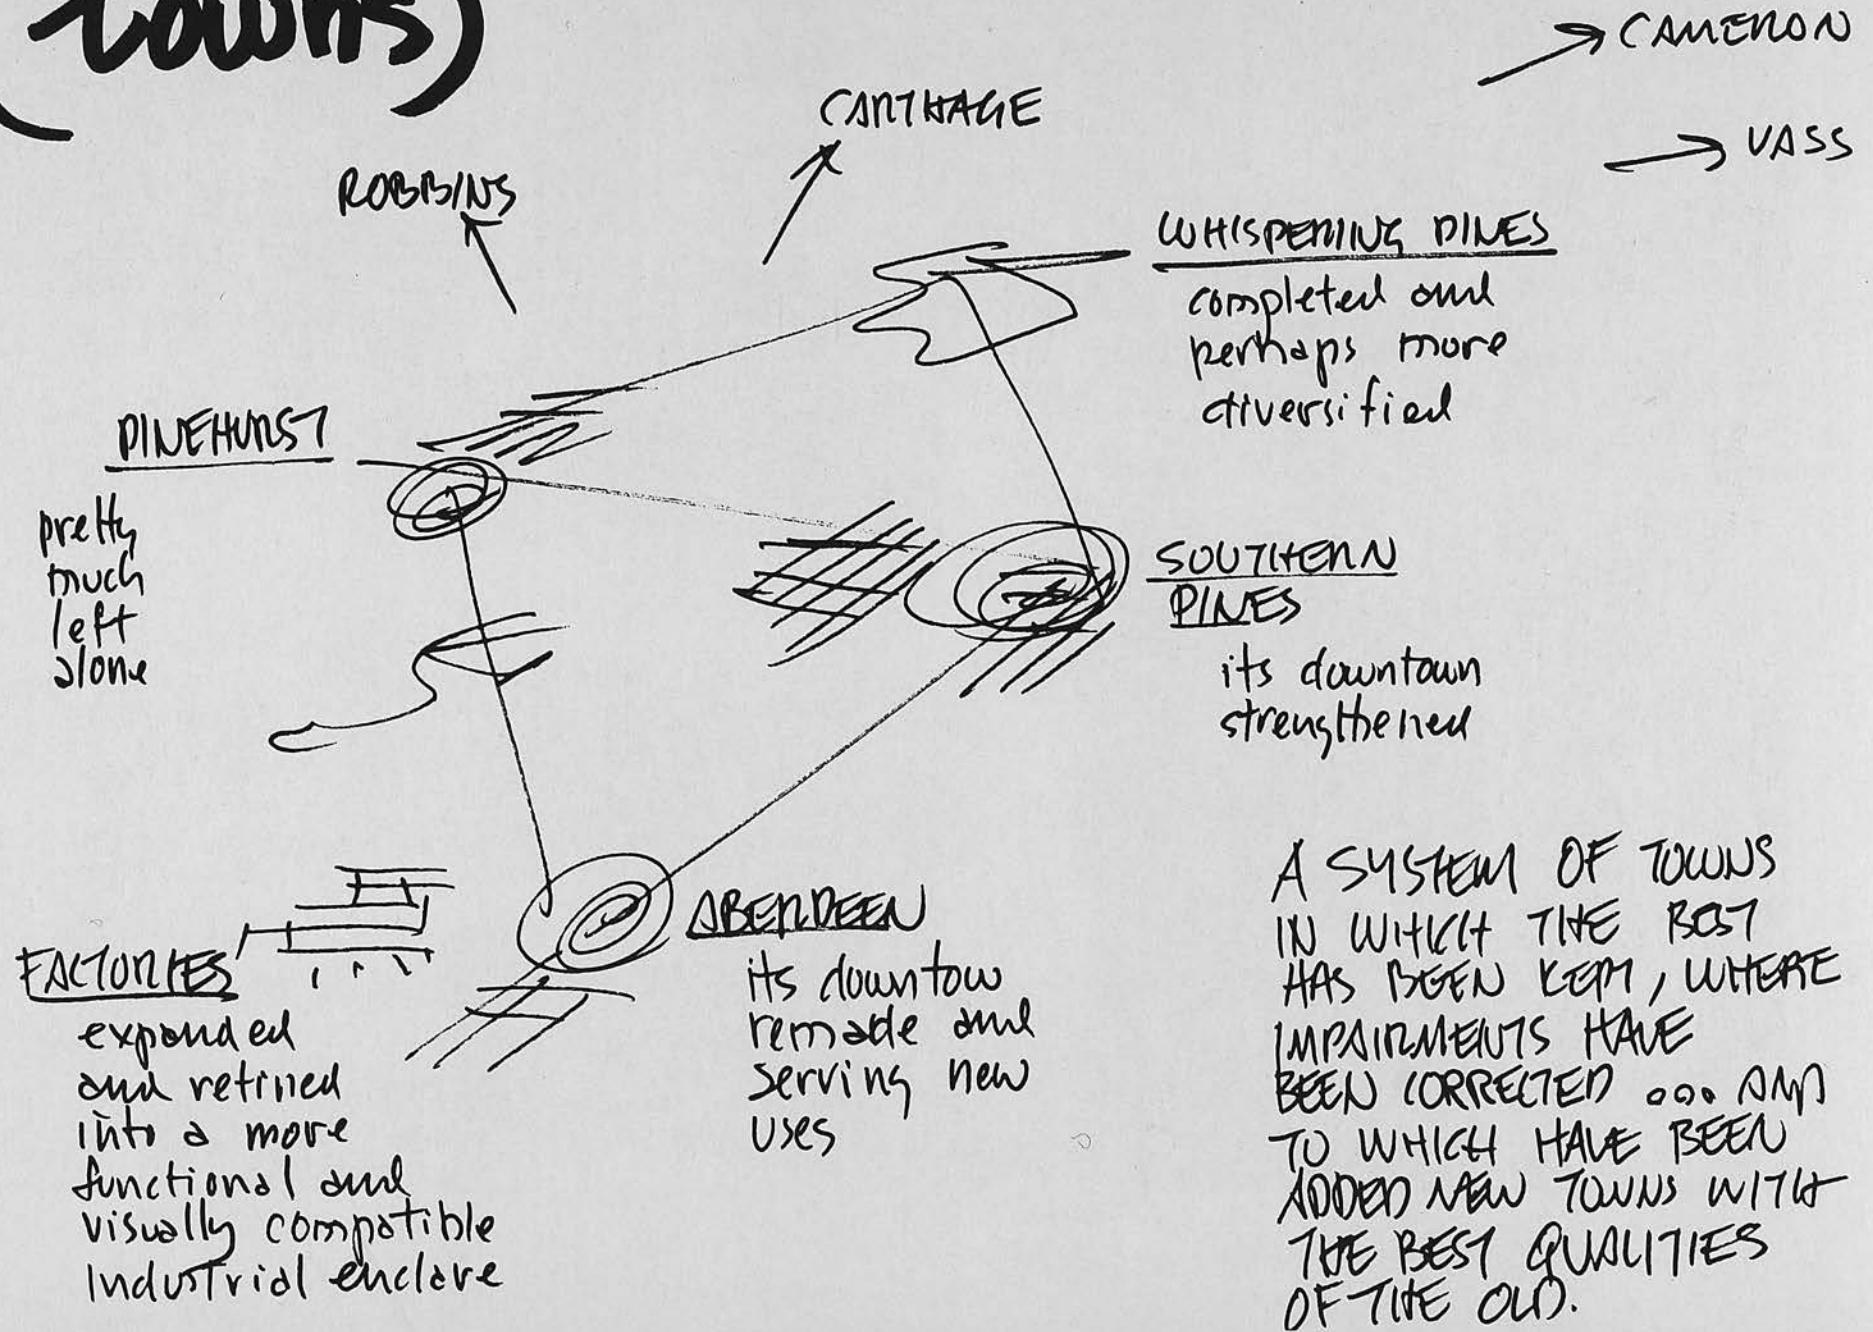 towns)
CAMERON
VASS
CARTHAGE
ROBBINS
WHISPERING PINES
completed and
perhaps more
diversified
PINEHURST
pretty
much
left
alone
SOUTHERN
PINES
its downtown
strengthened
ABERDEEN
its downtow
remade and
serving new
uses
FACTORIES
expanded
and retined
into a more
functional and
visually compatible
Industrial enclave
A SYSTEM OF TOWNS
IN WHICH THE BEST
HAS BEEN KEPT, WHERE
IMPAIRMENTS HAVE
BEEN CORRECTED ... AND
TO WHICH HAVE BEEN
ADDED NEW TOWNS WITH
THE BEST QUALITIES
OF THE OLD.